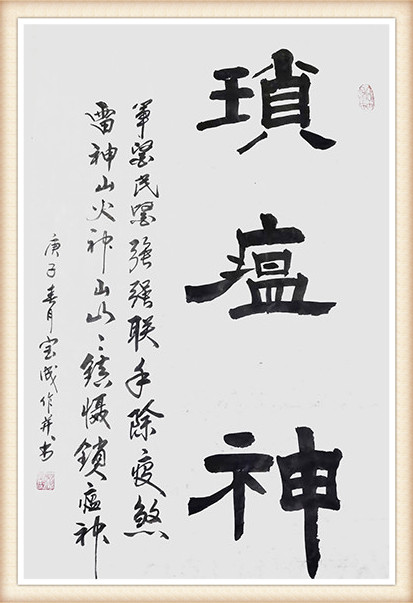 瑣瘟神
軍醫民醫强强联手除疫煞
雷神山火神山山〻鎮慑鎖瘟神
庚子春月宝成作并书